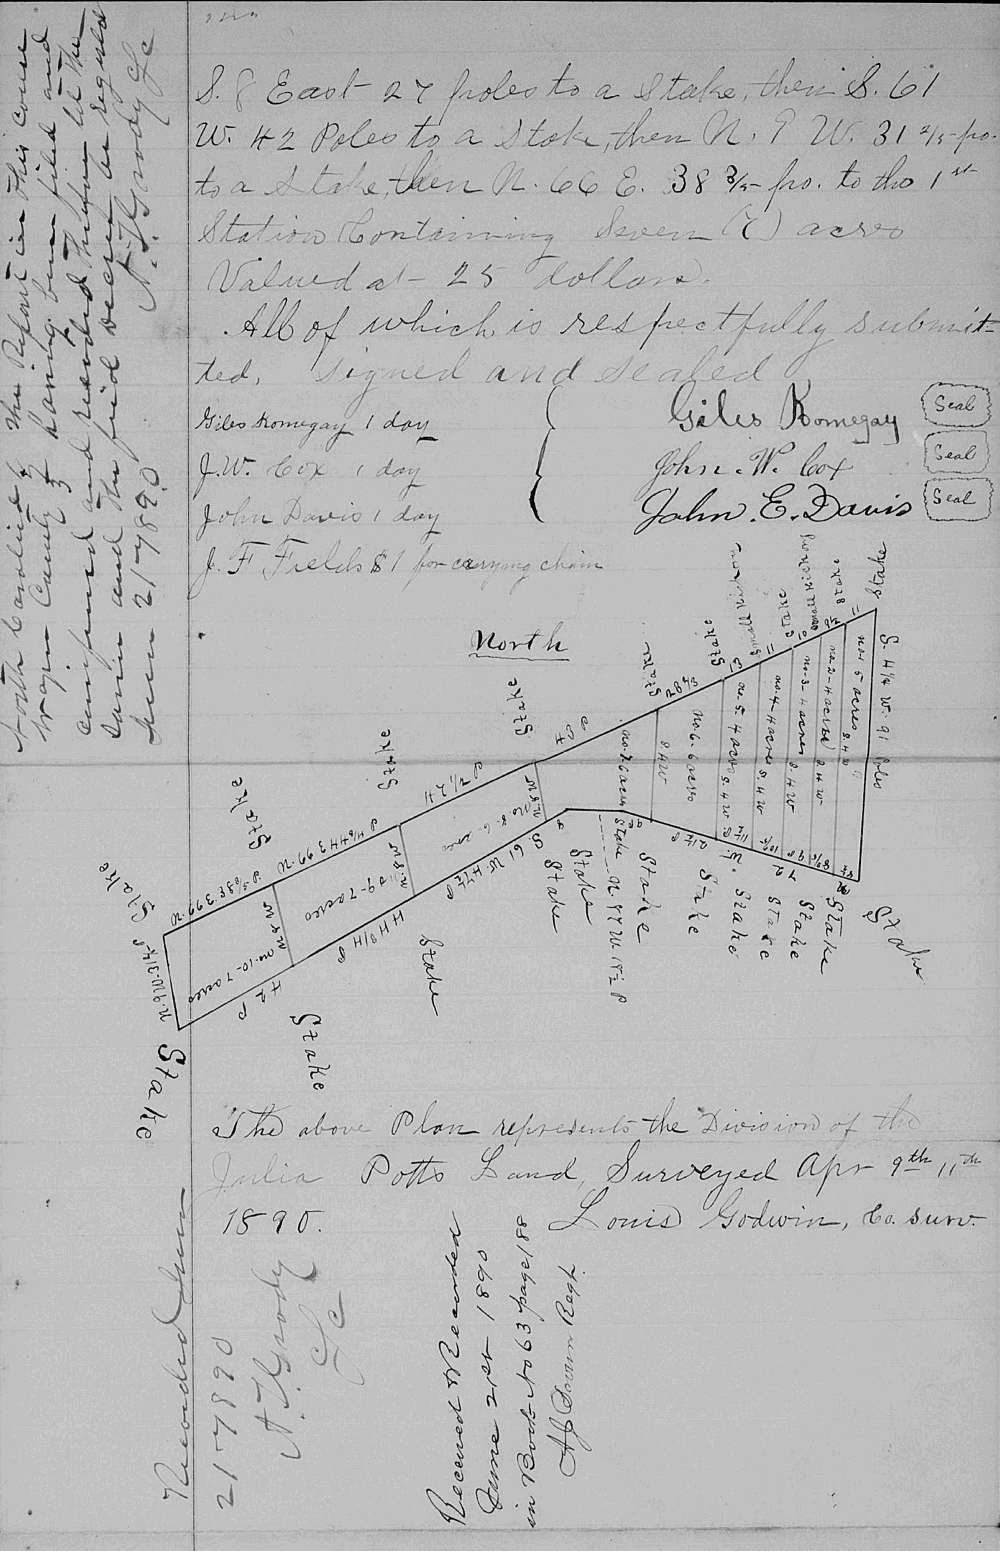 S. 8 East 27 poles to a Stake, then S. 61
W. 42 Poles to a Stake, then N. 9 W. 31 2/5 po.
to a Stake, then N. 66 E. 38 3/5 po. to the 1st
Station Containing Seven (7) acres
Valued at 25 dollars.
All of which is respectfully submit-
ted. Signed and Sealed
Giles Kornegay 1 day
Giles Kornegay Seal
J. W. Cox 1 day
John. W. Cox Seal
John Davis 1 day
John. E. Davis Seal
J. F Fields $1 for carrying chain
North
Stake
Stake
Stake
Stake
Stake
Stake
Small Hickory
Stake
Small Hickory
Stake
Stake
S. 4 1/4 W. 91 Poles
no 1 5 acres
no. 2 - 4 acres
no. 3 - 4 acres
no. 4 - 4 acres
no. 5. 4 acres
no. 6. 6 acres
no. 7 6 acres
no 8. 6 acres
no 9 - 7 acres
no. 10 - 7 acres
N. 9 W. 31 2/5 P
42 P
N 8 W
N 8 W
N 8 W
S 61 W 47 1/2 P
N 87 W 18 1/2 P
Stake
Stake
Stake
Stake
Stake
Stake
Stake
Stake
Stake
Stake
Stake
Stake
Stake
The above Plan represents the Division of the
Julia Potts Land, Surveyed Apr 9th, 11th
1890. Louis Godwin, Co. Surv.
North Carolina } The Report in this cause
Wayne County } having been filed and
confirmed and recorded therefore let the
same and the final decree be regstd
June 21 1890 A. T. Grady CSC
Recorded June
21 1890
A. T. Grady
CSC
Received & Recorded
June 21st 1890
in Book No 63 page 188